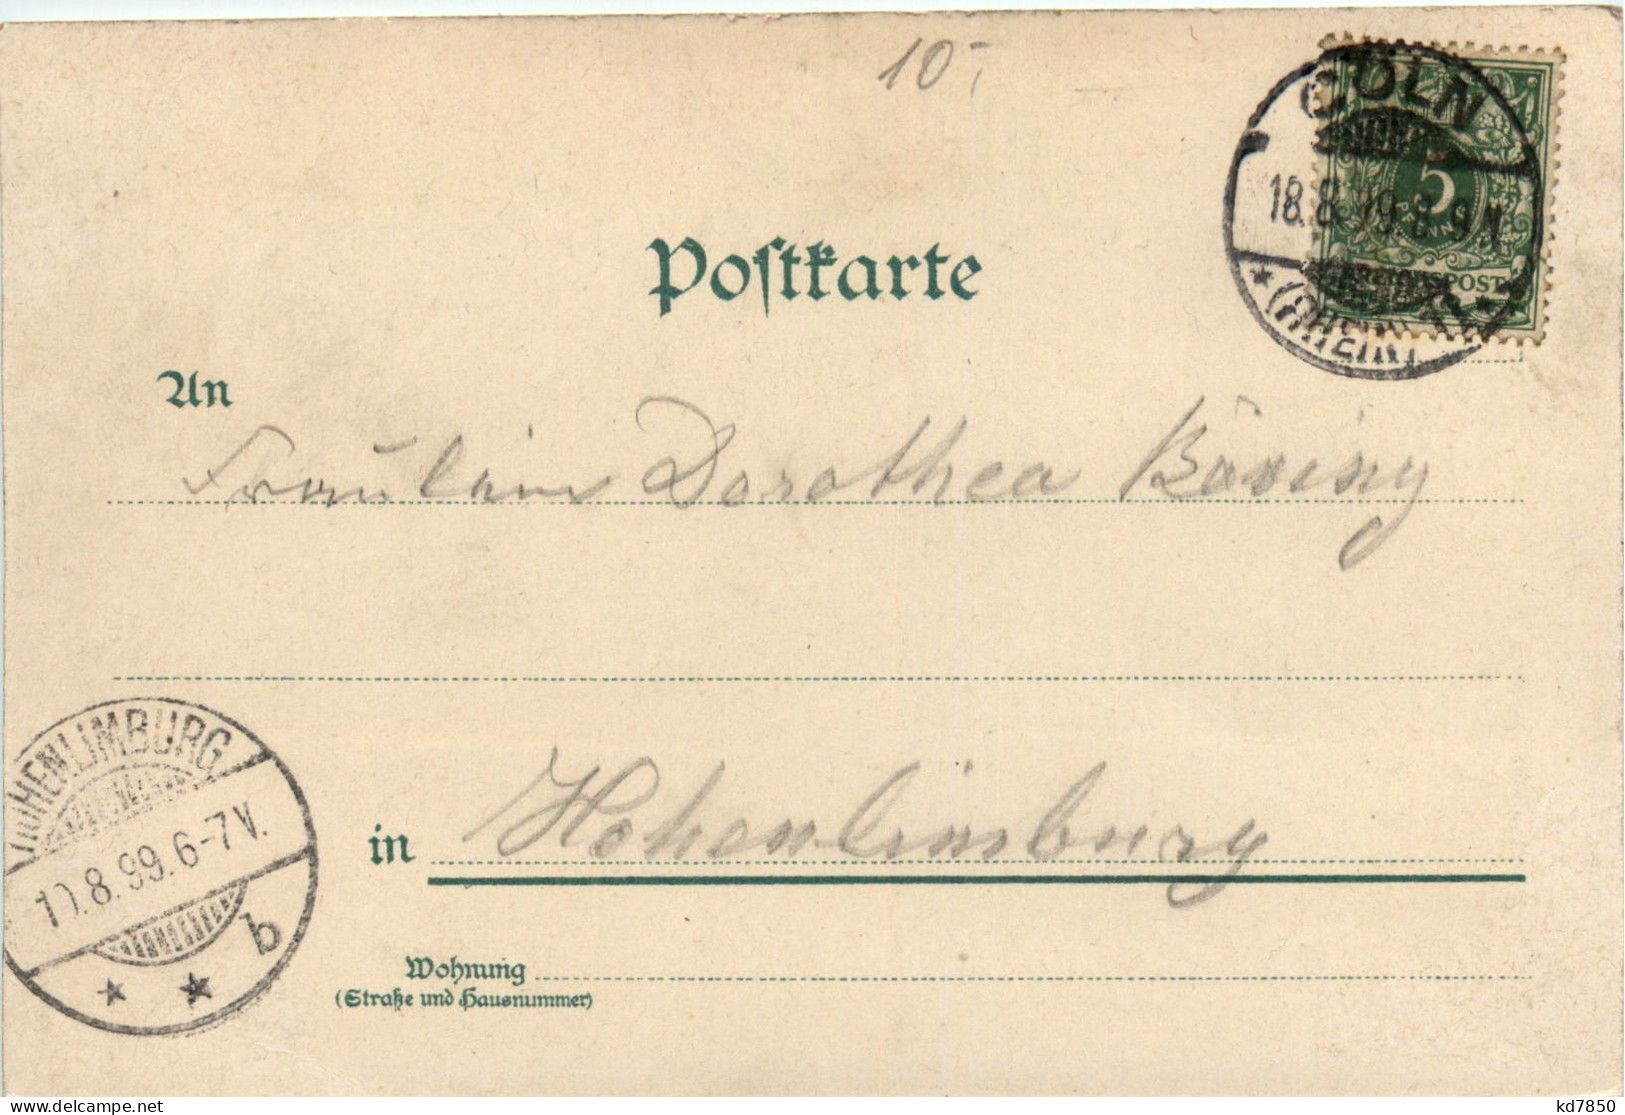 10,-
CÖLN
18.8.99.8-9N.
(RHEIN)
5
PFENNIG
REICHSPOST
Postkarte
An
Fräulein Dorothea Böving
HOHENLIMBURG
in Hohenlimburg
19.8.99.6-7V.
b
Wohnung
(Straße und Hausnummer)
delcampe.net
kd7850